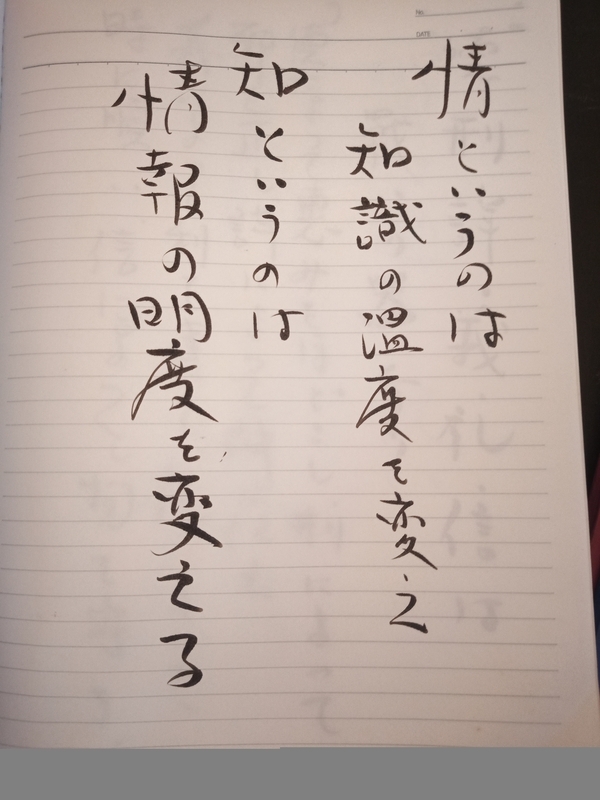 情というのは
知識の温度を変え
知というのは
情報の明度を変える
No.
DATE